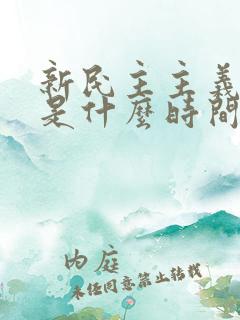 新民主主義
是什麼時間
內庭
未經同意禁止轉載